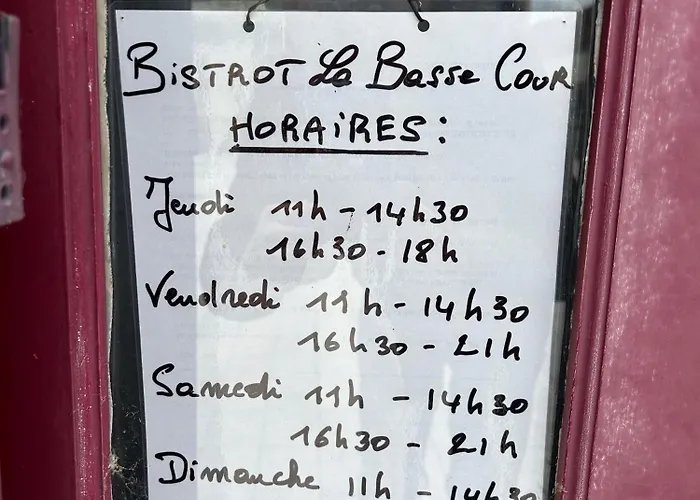 BISTROT La Basse COUR
HORAIRES :
Jeudi 11h - 14h30
16h30 - 18h
Vendredi 11h - 14h30
16h30 - 21h
Samedi 11h - 14h30
16h30 - 21h
Dimanche 11h - 14h30